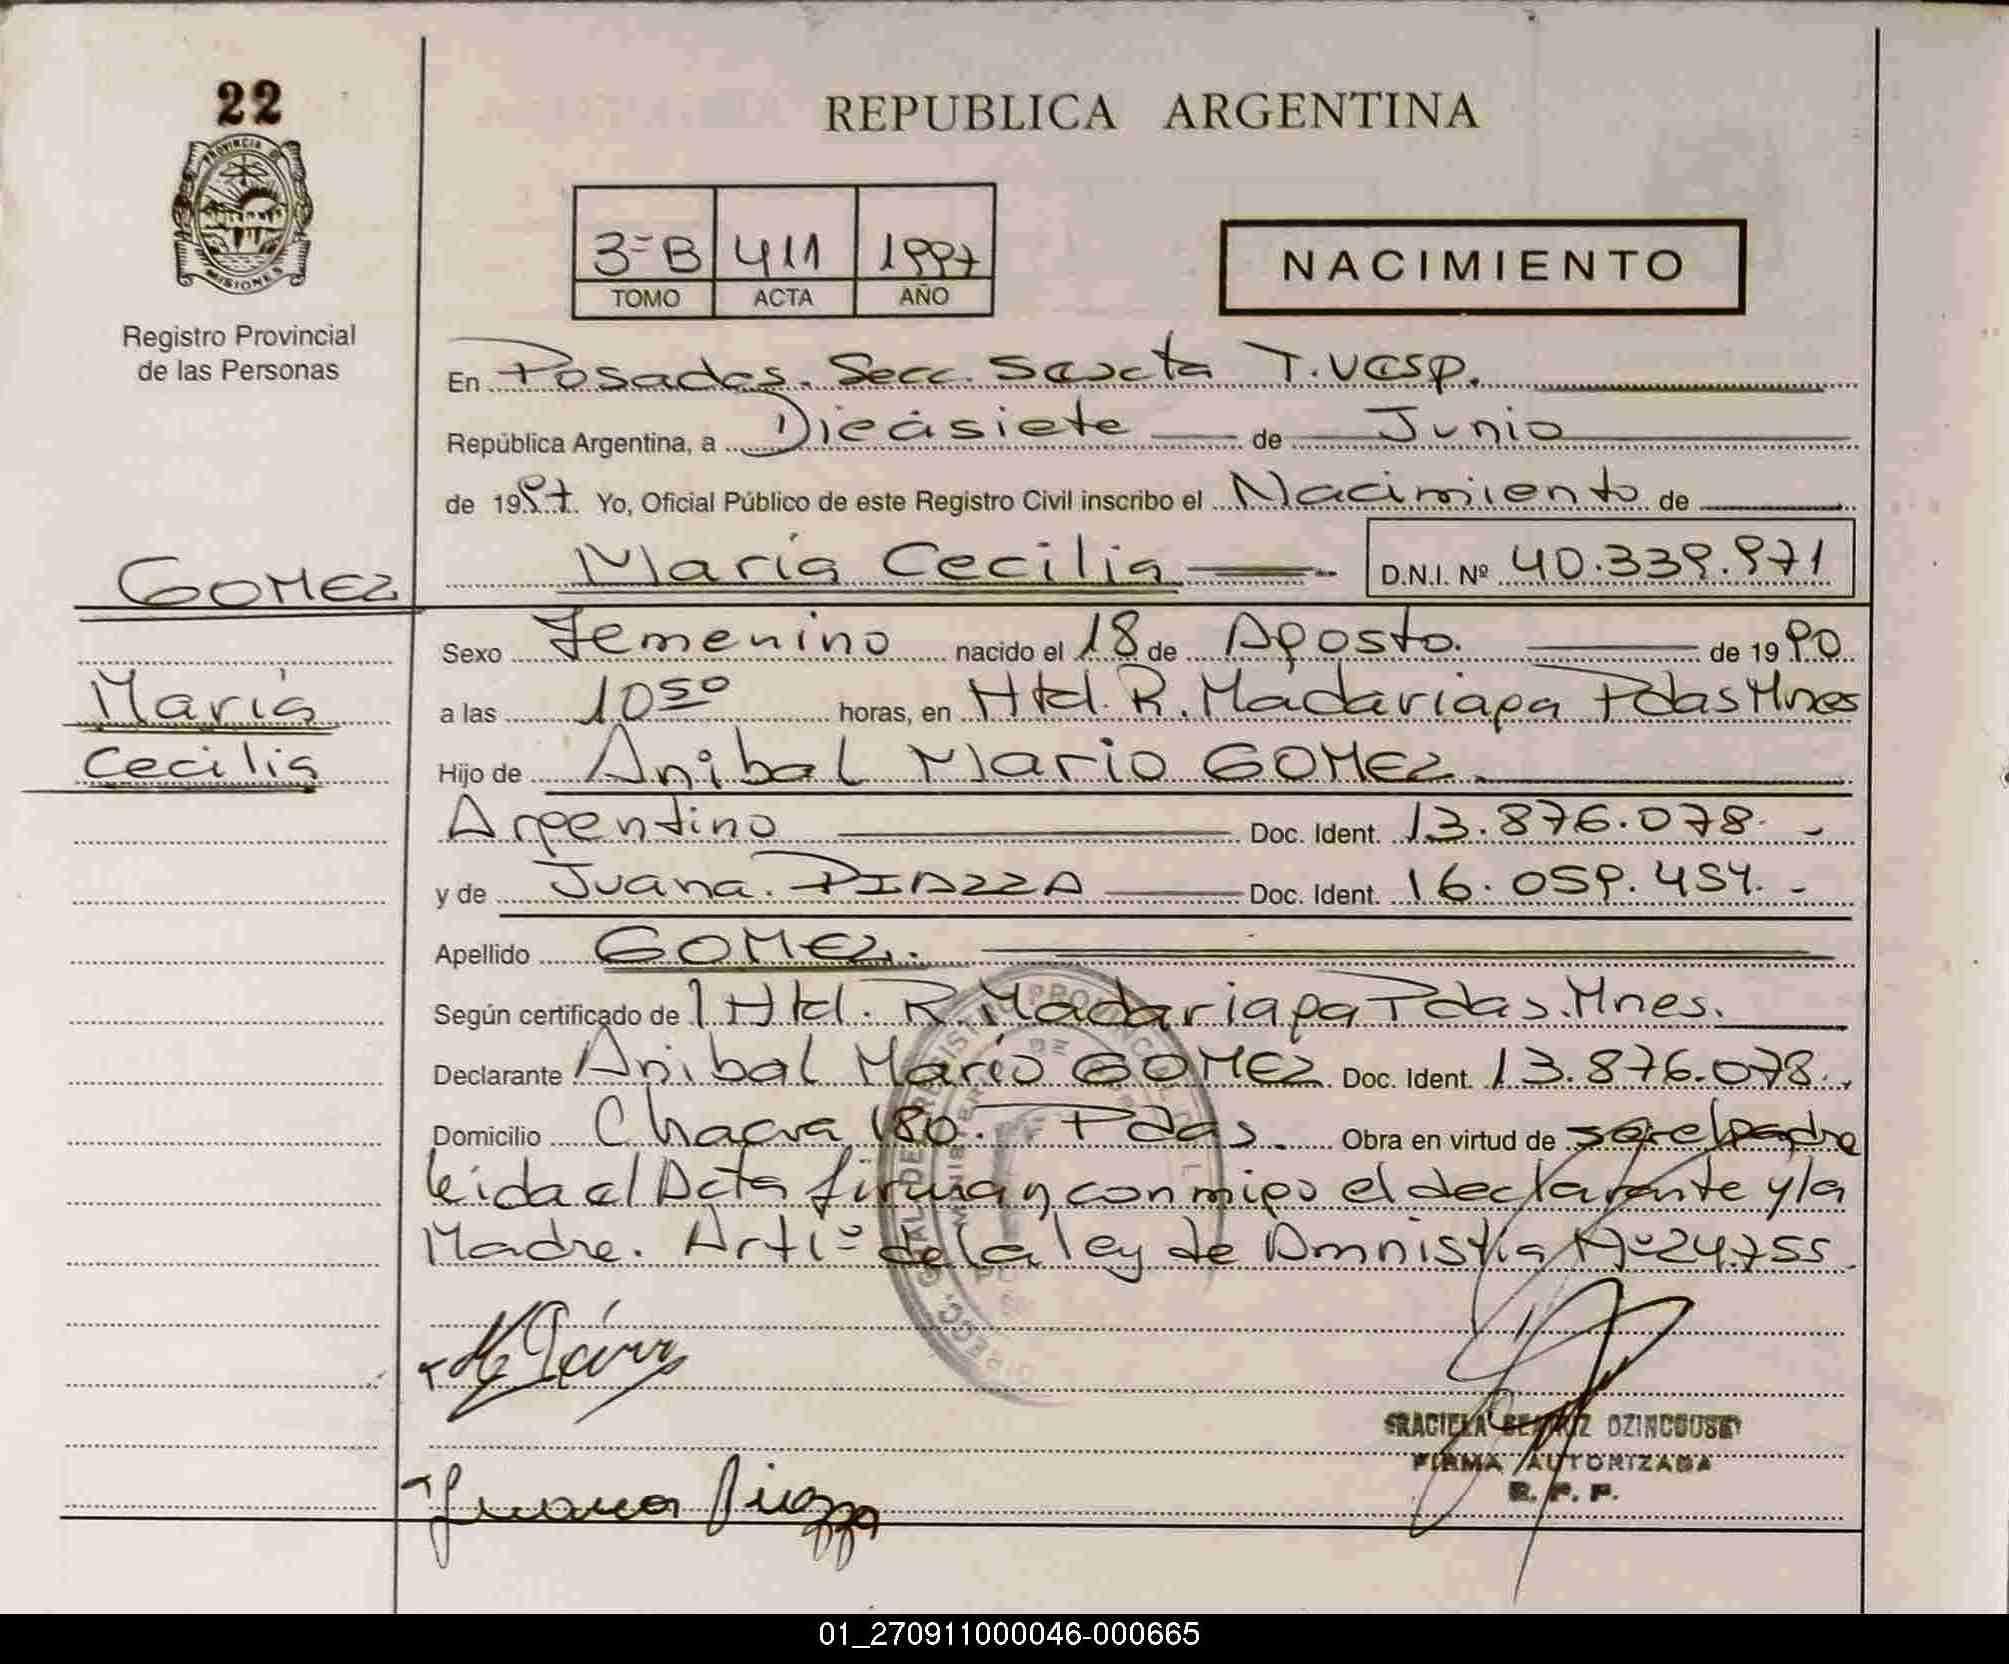 22
PROVINCIA DE
MISIONES
Registro Provincial
de las Personas
REPUBLICA ARGENTINA
3=B 411 1997
TOMO ACTA AÑO
NACIMIENTO
En Posadas. Secc. Sexta T. Vesp.
República Argentina, a Diecisiete de Junio
de 1997. Yo, Oficial Público de este Registro Civil inscribo el Nacimiento de
María Cecilia D.N.I. Nº 40.339.971
GOMEZ
María
Cecilia
Sexo Femenino nacido el 18 de Agosto. de 1990
a las 10 50 horas, en Htal. R. Madariaga Pdas Mnes
Hijo de Anibal Mario GOMEZ.
Argentino Doc. Ident. 13.876.078. -
y de Juana. PIAZZA Doc. Ident. 16.059.454. -
Apellido GOMEZ.
Según certificado de Htal. R. Madariaga Pdas. Mnes.
Declarante Anibal Mario GOMEZ Doc. Ident. 13.876.078.
Domicilio Chacra 180. Pdas. Obra en virtud de ser el padre
leida el Acta firman conmigo el declarante y la
Madre. Art 1º de la ley de Amnistia Nº 24.755
GRACIELA BEATRIZ
FIRMA AUTORIZADA
R. P. P.
Juana Piazza
01_270911000046-000665